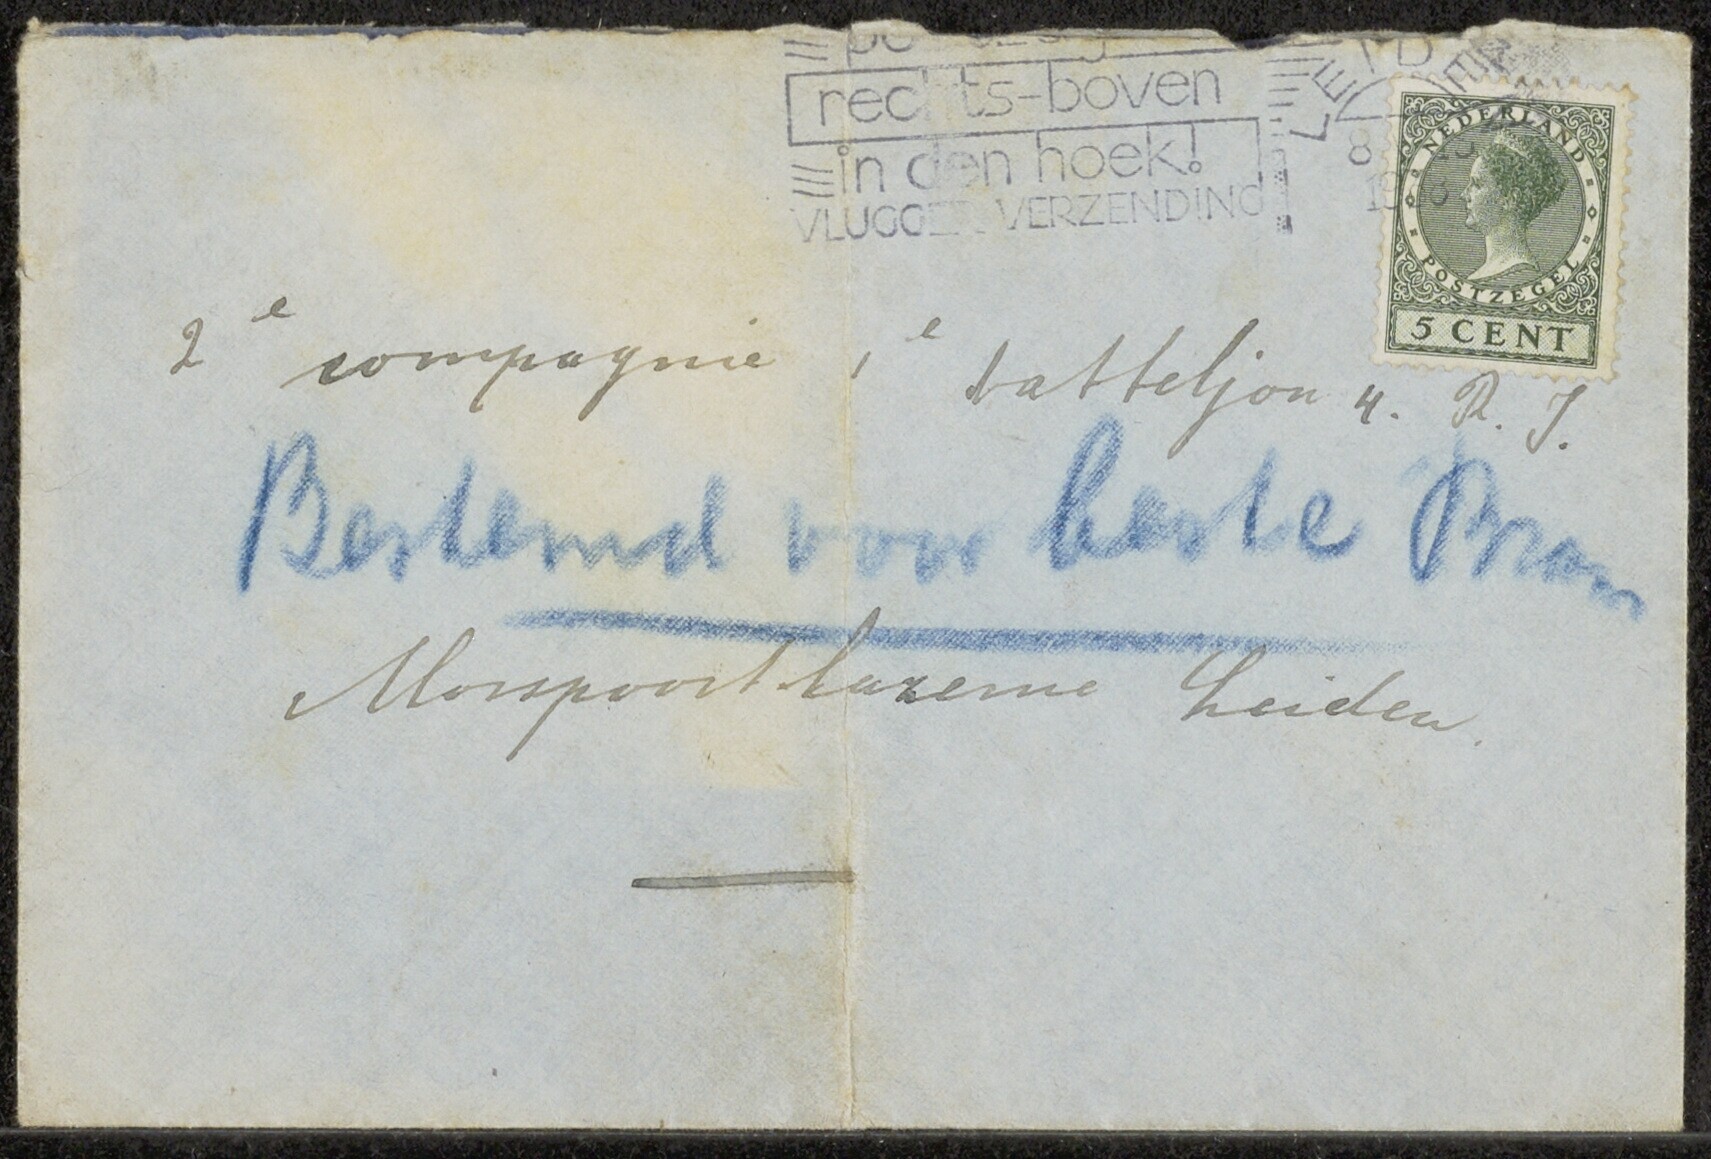 rechts-boven
in den hoek!
VLUGGE VERZENDING
LEIDEN
NEDERLAND
POSTZEGEL
5 CENT
2e compagnie 1e batteljon 4. R. J.
Bestemd voor beste Bram
Morspoortkazerne Leiden.